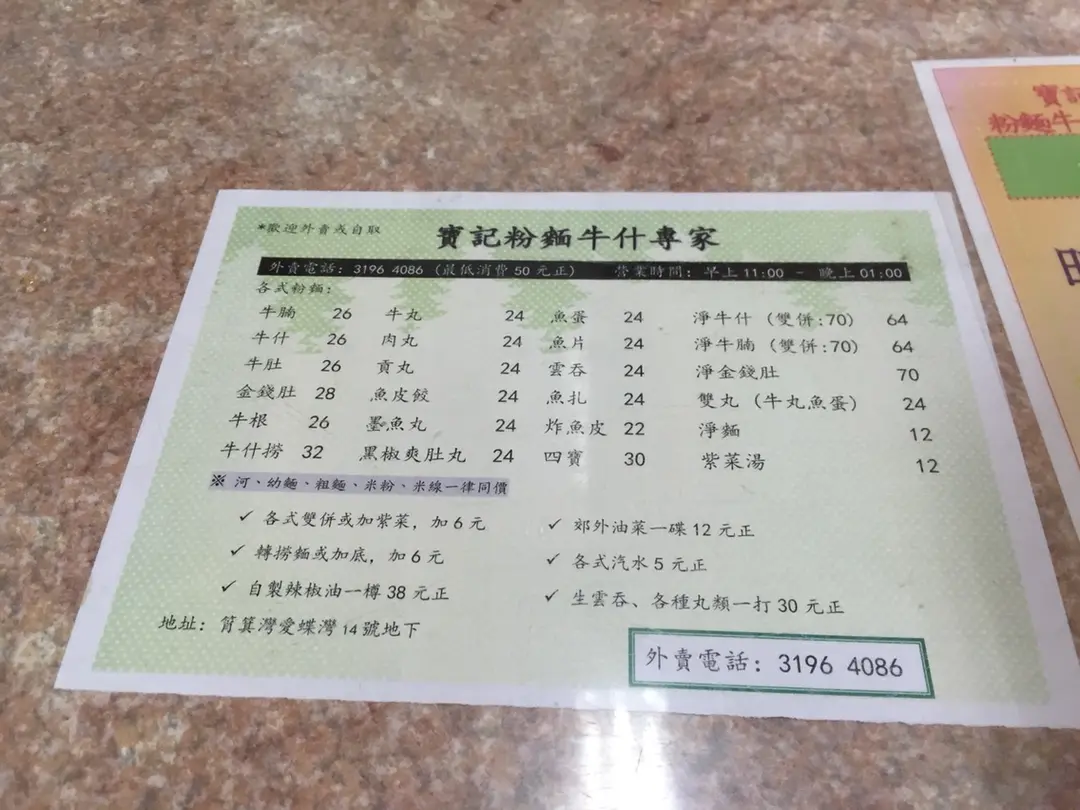 *歡迎外賣或自取
寶記粉麵牛什專家
外賣電話：3196 4086（最低消費50元正） 營業時間：早上11:00 - 晚上01:00
各式粉麵：
牛腩 26 牛丸 24 魚蛋 24 淨牛什（雙併:70） 64
牛什 26 肉丸 24 魚片 24 淨牛腩（雙併:70） 64
牛肚 26 貢丸 24 雲吞 24 淨金錢肚 70
金錢肚 28 魚皮餃 24 魚扎 24 雙丸（牛丸魚蛋） 24
牛根 26 墨魚丸 24 炸魚皮 22 淨麵 12
牛什撈 32 黑椒爽肚丸 24 四寶 30 紫菜湯 12
※ 河、幼麵、粗麵、米粉、米線一律同價
✓ 各式雙併或加紫菜，加6元
✓ 轉撈麵或加底，加6元
✓ 自製辣椒油一樽38元正
✓ 郊外油菜一碟12元正
✓ 各式汽水5元正
✓ 生雲吞、各種丸類一打30元正
地址：筲箕灣愛蝶灣14號地下
外賣電話：3196 4086
寶記
粉麵牛